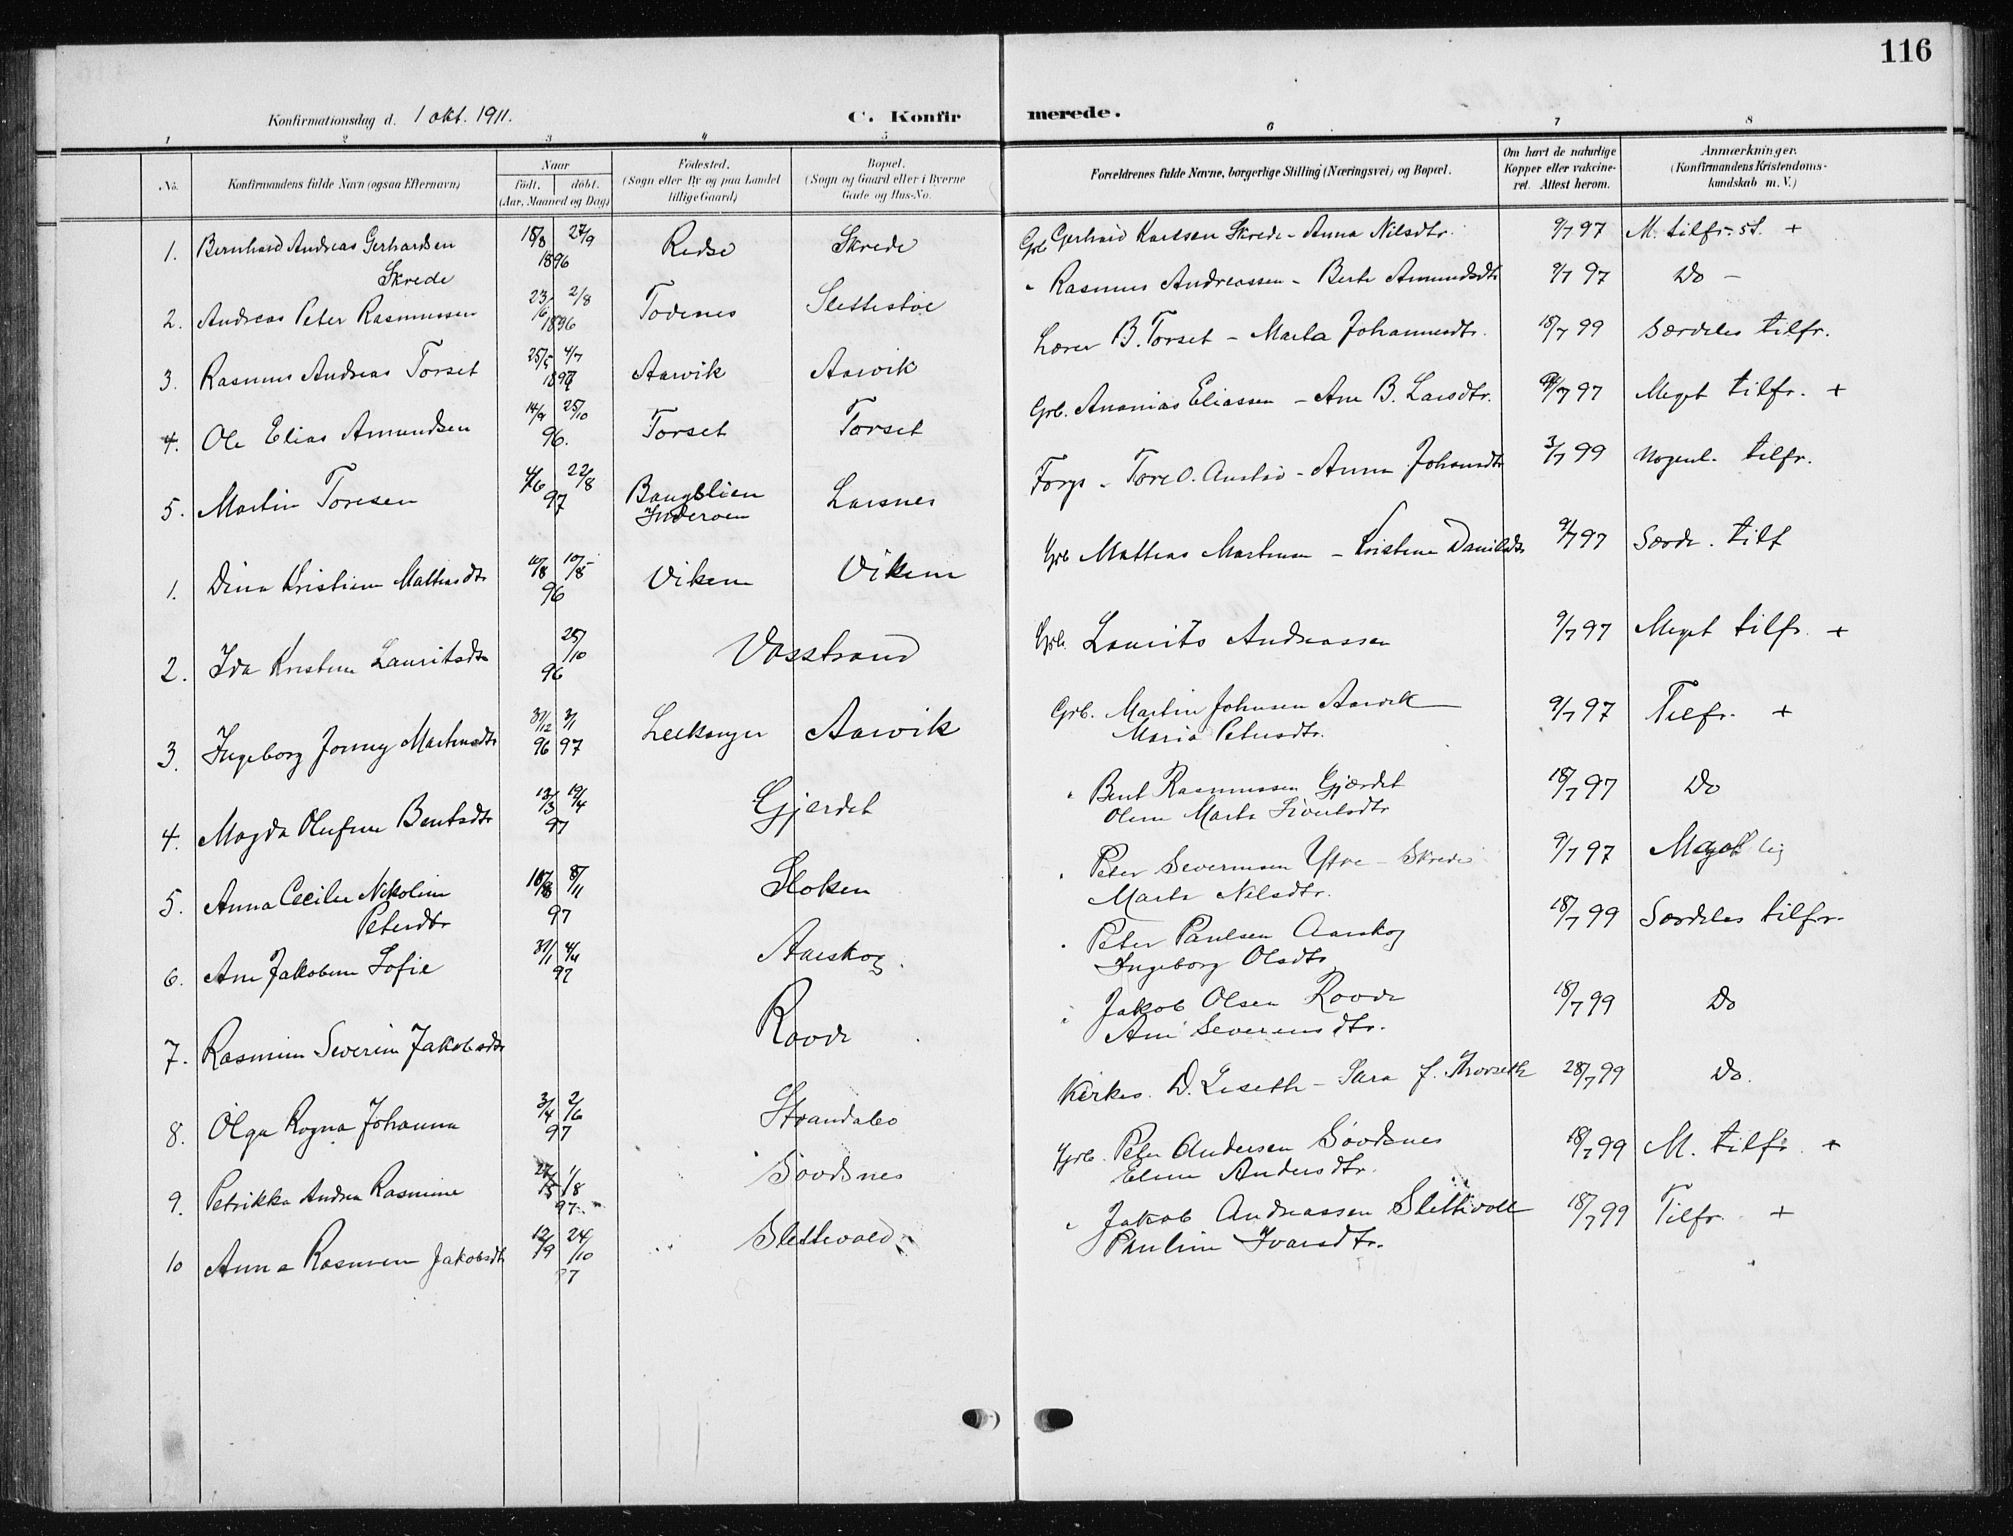 116
Konfirmationsdag d. 1 okt. 1911.
C. Konfirmerede.
1 2 3 4 5 6 7 8
No.
Konfirmandens fulde Navn (ogsaa Efternavn)
Naar
født. døbt.
(Aar, Maaned og Dag)
Fødested.
(Sogn eller By og paa Landet
tillige Gaard)
Bopæl.
(Sogn og Gaard eller i Byerne
Gade og Hus-No.
Forældrenes fulde Navne, borgerlige Stilling (Næringsvei) og Bopæl.
Om havt de naturlige
Kopper eller vakcine-
ret. Attest herom.
Anmærkninger.
(Konfirmandens Kristendoms-
kundskab m. V.)
1. Bernhard Andreas Gerhardsen 18/8 27/9 Redse Skrede Grb Gerhard Karlsen Skrede - Anna Nilsdtr. 9/7 97 M. tilfr. st. +
Skrede 1896
2. Andreas Peter Rasmussen 23/6 2/8 Todenes Slettestøl " Rasmus Andreassen - Berte Amundsdtr 9/7 97 Do -
1896
3. Rasmus Andreas Torset 25/5 4/7 Aarvik Aarvik Lærer B. Torset - Marta Johannesdtr. 18/7 99 Særdeles tilfr.
1897
4. Ole Elias Amundsen 14/9 25/10 Torset Torset Grb. Ananias Eliassen - Ane B. Larsdtr. 9/7 97 Meget tilfr. +
96.
5. Martin Toresen 4/6 22/8 Bangslien Larsnes Forps. Tore O. - Anna Johansdtr 3/7 99 Nogenl. tilfr.
97 Inderøen
1. Dina Kristine Mathiasdtr 10/8 Viken Viken Grb Mathias Martinsen - Kristine Danielsdtr 9/7 97 Særde. tilf
96
2. Ida Kristine Lauritsdtr 25/10 Vasstrand Grb. Laurits Andreassen 9/7 97 Meget tilfr. +
96
3. Ingeborg Jonny Martinsdtr 31/12 3/1 Leikanger Aarvik Grb. Martin Johnsen Aarvik 9/7 97 Tilfr. +
96 97 Maria Petersdtr.
4. Magda Olufine Bentsdtr 13/3 19/4 Gjerdet " Bent Rasmussen Gjærdet 18/7 97 Do
97 Oline Marta Sivertsdtr
5. Anna Cecilie Nikoline 8/11 Stoken " Peter Severinsen Ytre - Skrede 9/7 97 Meget
Petersdtr 97 Marta Nilsdtr.
6. Ane Jakobine Sofie 31/1 4/4 Aarskog. " Peter Paulsen Aarskog 18/7 99 Særdeles tilfr.
97 Ingeborg Olsdtr
7. Rasmine Severine Jakobsdtr Rovde " Jakob Olsen Rovde 18/7 99 Do
Ane Severinsdtr.
8. Olga Rogna Johanna 3/4 2/6 Strandabø Kirkes. D. Liseth - Sara J. Thorseth 28/7 99 Do.
97
9. Petrikka Andrea Rasmine 27/5 1/8 Søvdsnes Grb. Peter Andersen Søvdsnes 18/7 99 M. tilfr. +
97 Eline Andersdtr.
10 Anna Rasmine Jakobsdtr 12/9 24/10 Slettevold " Jakob Andreassen Slettevoll 18/7 99 Tilfr. +
97 Pauline Ivarsdtr.